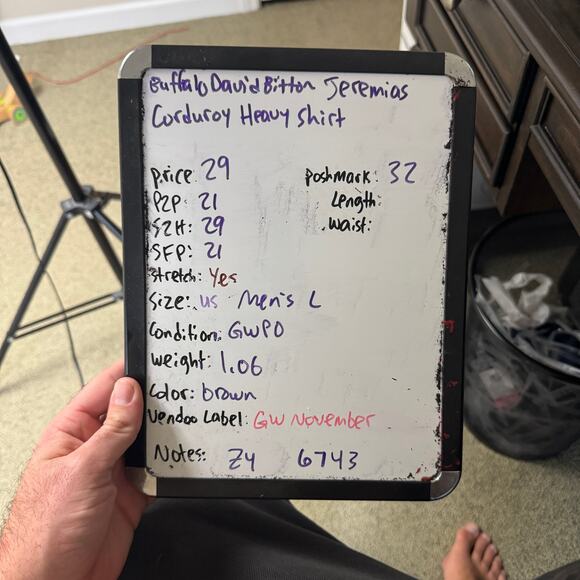 Buffalo David Bitton Jeremias
Corduroy Heavy Shirt
price: 29
poshmark: 32
P2P: 21
Length:
S2H: 29
Waist:
SFP: 21
Stretch: Yes
Size: US Men's L
Condition: GWPO
Weight: 1.06
Color: brown
Vendoo Label: GW November
Notes: Z4 6743